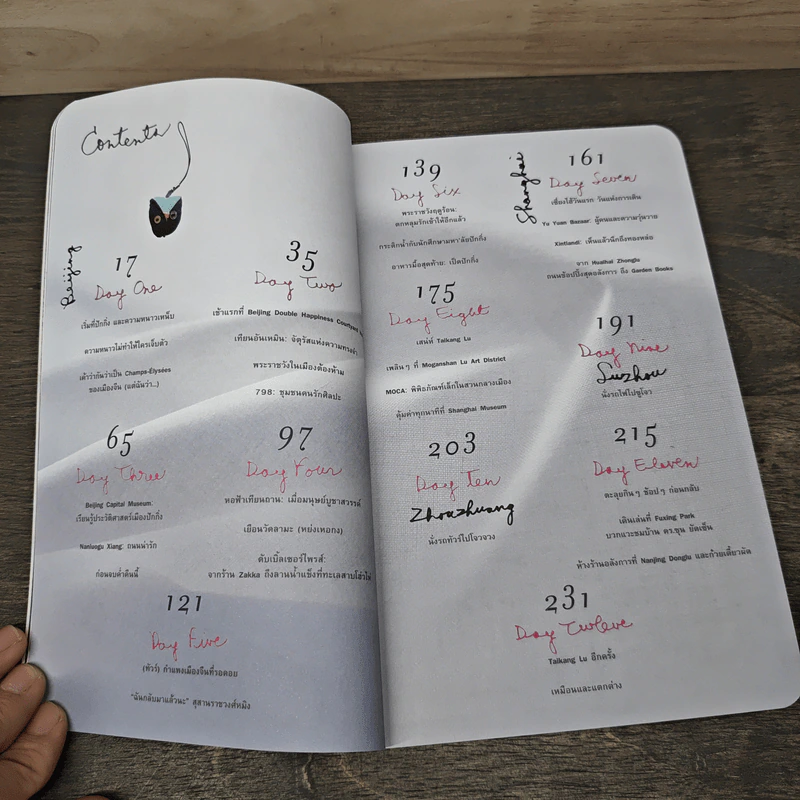 Contents
Beijing
17
Day One
เริ่มที่ปักกิ่ง และความหนาวเหน็บ
ความหนาวไม่ทำให้ใครเจ็บตัว
เค้าว่ากันว่าเป็น Champs-Élysées
ของเมืองจีน (แต่ฉันว่า...)
35
Day Two
เช้าแรกที่ Beijing Double Happiness Courtyard
เทียนอันเหมิน: จัตุรัสแห่งความทรงจำ
พระราชวังในเมืองต้องห้าม
798: ชุมชนคนรักศิลปะ
65
Day Three
Beijing Capital Museum:
เรียนรู้ประวัติศาสตร์เมืองปักกิ่ง
Nanluogu Xiang: ถนนน่ารัก
ก่อนจบค่ำคืนนี้
97
Day Four
หอฟ้าเทียนถาน: เมื่อมนุษย์บูชาสวรรค์
เยือนวัดลามะ (หย่งเหอกง)
ดับเบิ้ลเซอร์ไพรส์:
จากร้าน Zakka ถึงลานน้ำแข็งที่ทะเลสาบโฮ่วไห่
121
Day Five
(ทัวร์) กำแพงเมืองจีนที่รอคอย
"ฉันกลับมาแล้วนะ" สุสานราชวงศ์หมิง
139
Day Six
พระราชวังฤดูร้อน:
ตกหลุมรักเข้าให้อีกแล้ว
กระติกน้ำกับนักศึกษามหา'ลัยปักกิ่ง
อาหารมื้อสุดท้าย: เป็ดปักกิ่ง
Shanghai
161
Day Seven
เซี่ยงไฮ้วันแรก วันแห่งการเดิน
Yu Yuan Bazaar: ผู้คนและความวุ่นวาย
Xintiandi: เห็นแล้วนึกถึงทองหล่อ
จาก Huaihai Zhonglu
ถนนช้อปปิ้งสุดอลังการ ถึง Garden Books
175
Day Eight
เสน่ห์ Taikang Lu
เพลินๆ ที่ Moganshan Lu Art District
MOCA: พิพิธภัณฑ์เล็กในสวนกลางเมือง
คุ้มค่าทุกนาทีที่ Shanghai Museum
191
Day Nine
Suzhou
นั่งรถไฟไปซูโจว
203
Day Ten
Zhouzhuang
นั่งรถทัวร์ไปโจวจวง
215
Day Eleven
ตะลุยกินๆ ช้อปๆ ก่อนกลับ
เดินเล่นที่ Fuxing Park
บวกแวะชมบ้าน ดร.ซุน ยัดเซ็น
ห้างร้านอลังการที่ Nanjing Donglu และก๋วยเตี๋ยวผัด
231
Day Twelve
Taikang Lu อีกครั้ง
เหมือนและแตกต่าง